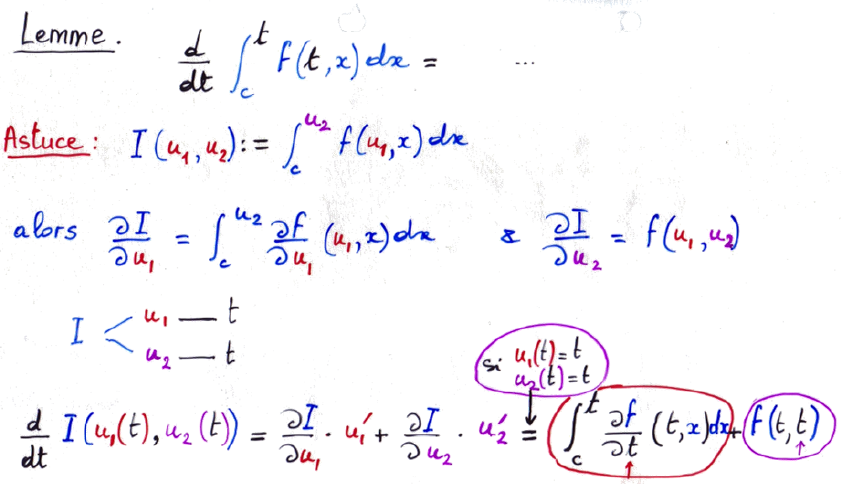 Lemme. d/dt ∫_c^t f(t,x) dx = ...
Astuce : I(u₁,u₂) := ∫_c^{u₂} f(u₁,x) dx
alors ∂I/∂u₁ = ∫_c^{u₂} ∂f/∂u₁ (u₁,x) dx & ∂I/∂u₂ = f(u₁,u₂)
I < u₁ — t
u₂ — t
si u₁(t)=t
u₂(t)=t
d/dt I(u₁(t),u₂(t)) = ∂I/∂u₁ · u₁' + ∂I/∂u₂ · u₂' = ∫_c^t ∂f/∂t (t,x) dx + f(t,t)